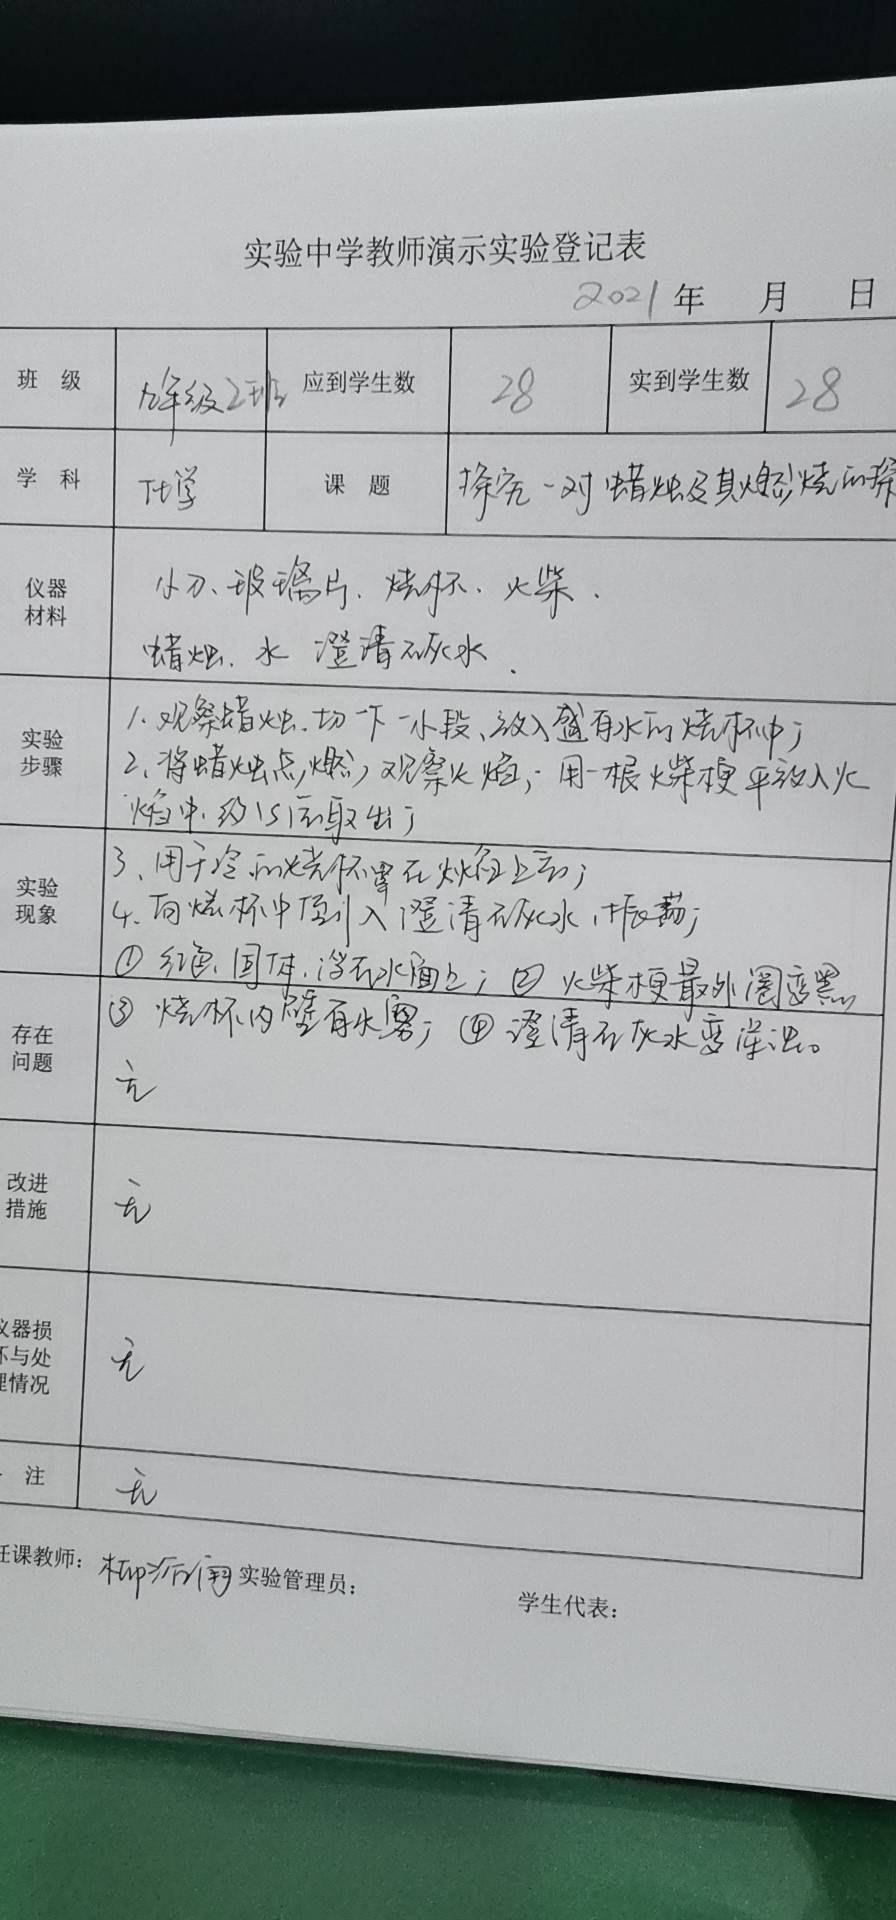 实验中学教师演示实验登记表
2021年 月 日
班 级 九年级2班 应到学生数 28 实到学生数 28
学 科 化学 课 题 探究一对蜡烛及其燃烧的探
仪器材料 小刀、玻璃片、烧杯、火柴、
蜡烛、水 澄清石灰水.
实验步骤 1、观察蜡烛、切下一小段、放入盛有水的烧杯中;
2、将蜡烛点燃,观察火焰;用一根火柴梗平放入火
焰中,约1S后取出;
3、用干冷的烧杯罩在火焰上方;
实验现象 4、向烧杯中倒入澄清石灰水,振荡;
① 红色、固体、浮在水面上;② 火柴梗最外圈变黑
③ 烧杯内壁有水雾;④ 澄清石灰水变浑浊。
存在问题 无
改进措施 无
仪器损坏与处理情况 无
注 无
任课教师: 实验管理员: 学生代表: